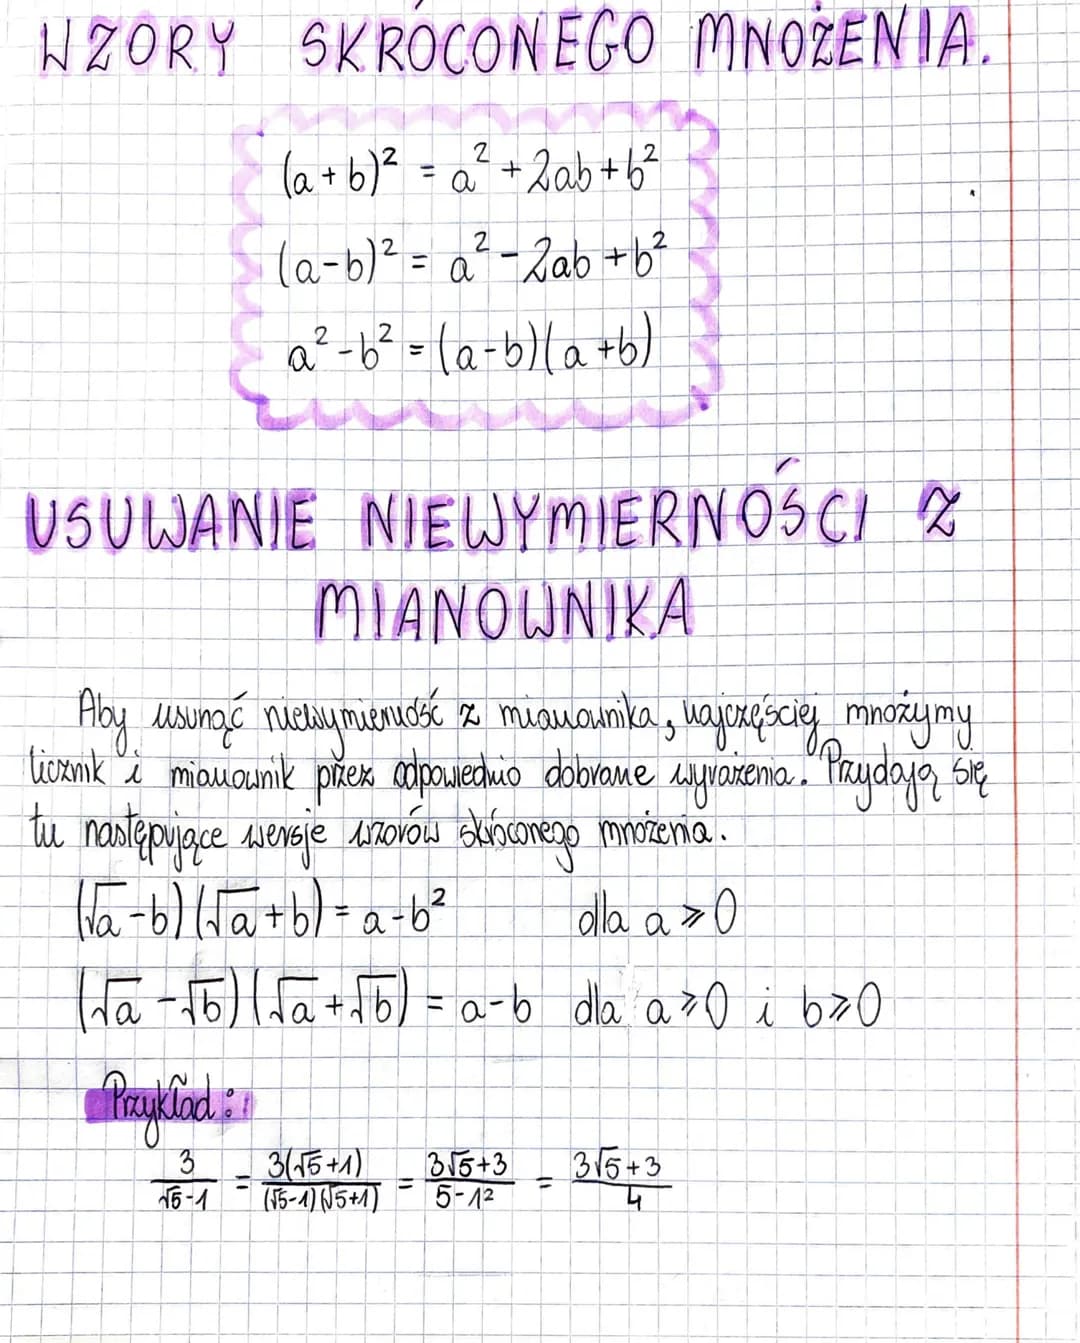 WZORY SKRÓCONEGO MNOŻENIA.
(a+b)² = a² + 2ab + b²
(a-b)² = a² - 2ab + b²
a² - b² = (a-b)(a+b)
USUWANIE NIEWYMIERNOŚCI Z
MIANOWNIKA
Aby usunąć niewymierność z mianownika, najczęściej mnożymy
licznik i mianownik przez odpowiednio dobrane wyrażenia. Przydają się
tu następujące wersje wzorów skróconego mnożenia.
(√a - b)(√a + b) = a - b² dla a ⩾ 0
(√a - √b)(√a + √b) = a - b dla a ⩾ 0 i b ⩾ 0
Przykład:
3/(√5-1) = 3(√5+1)/((√5-1)(√5+1)) = (3√5+3)/(5-1²) = (3√5+3)/4